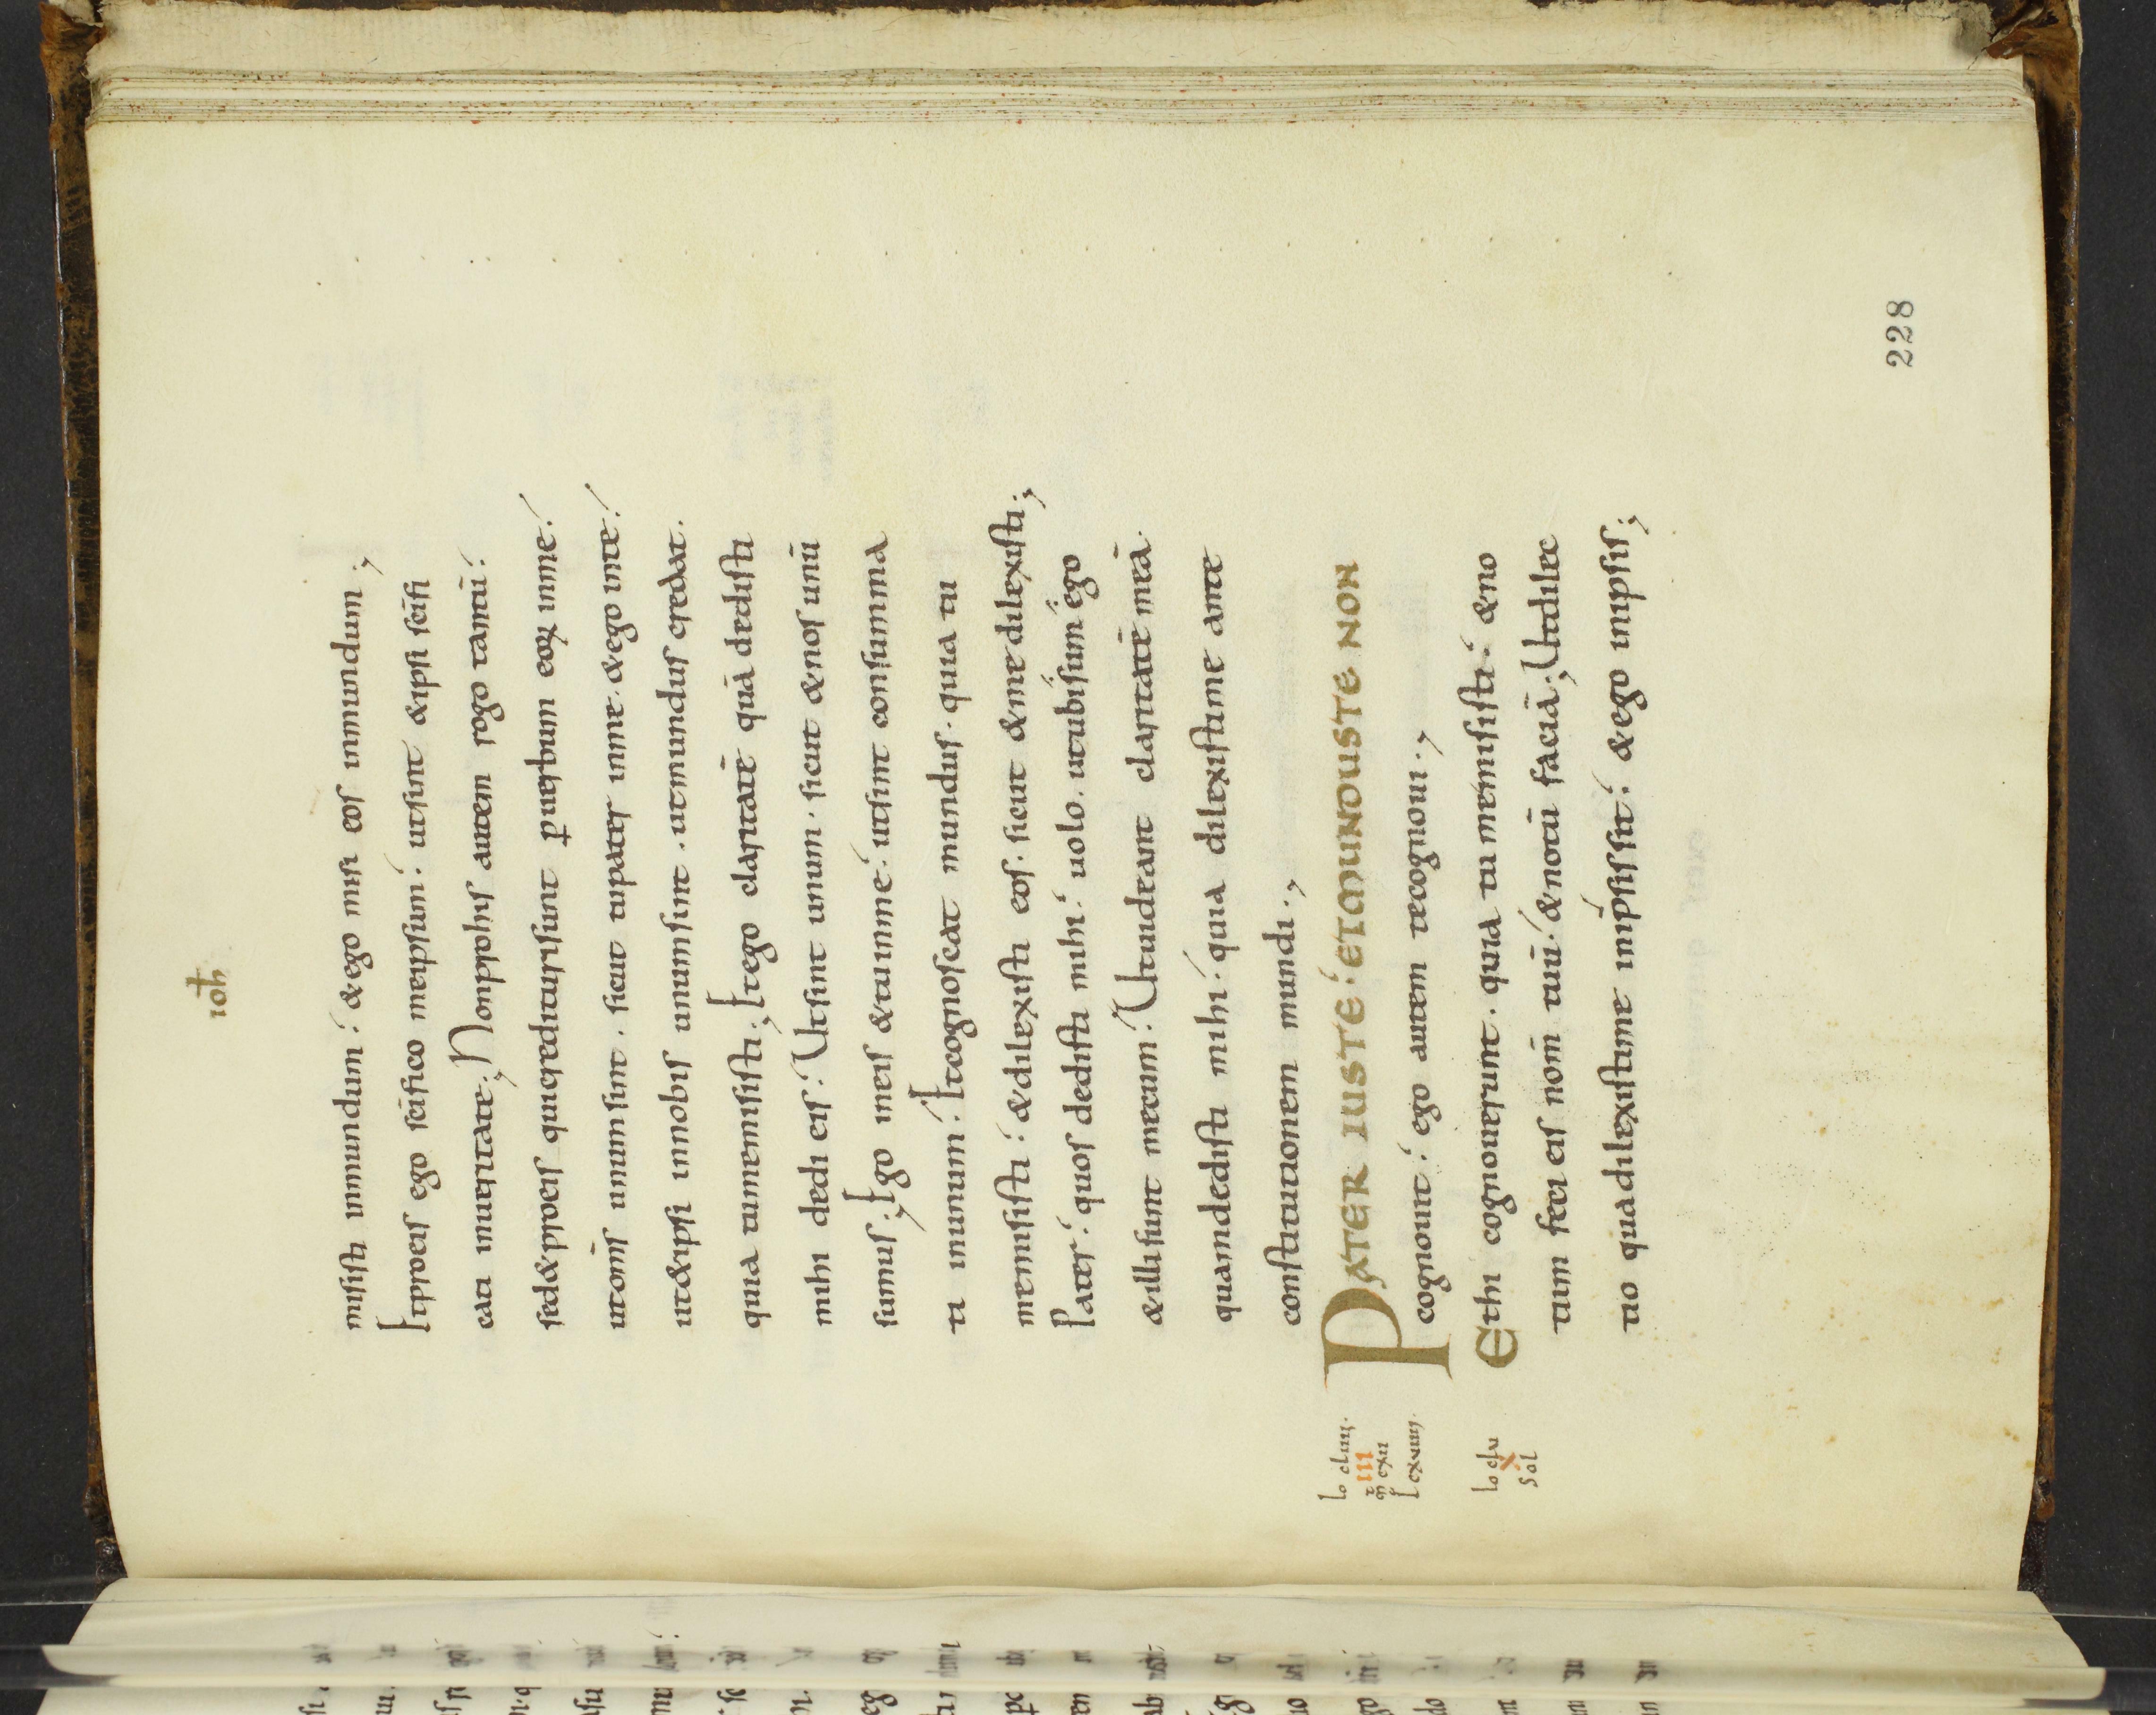 ioħ
misisti inmundum: & ego misi eos inmundum;
Et proeis ego scīfico meipsum: utsint & ipsi scīfi
cati inueritate; Nonprohis autem rogo tantū:
sed & proeis quicredituri sunt ꝑ uerbum eoꝝ inme:
utom̄s unum sint. sicut tupater inme. & ego inte:
ut & ipsi innobis unum sint. utmundus credat.
quia tumemisisti; Et ego claritatē quā dedisti
mihi dedi eis: Utsint unum. sicut & nos unū
sumus; Ego ineis & tu inme: utsint consumma
ti inunum: Et cognoscat mundus. quia tu
memisisti: & dilexisti eos. sicut & me dilexisti;
Pater: quos dedisti mihi: uolo. utubisum ego
& illi sint mecum: Utuideant claritatē meā.
quamdedisti mihi: quia dilexistime ante
constitutionem mundi.,
PATER IUSTE: ET MUNDUS TE NON
cognouit: ego autem te cognoui.,
Et hi cognouerunt. quia tu memisisti: & no
tum feci eis nom̄ tuū: & notū faciā; Ut dilec
tio qua dilexistime inipsis sit: & ego inipsis;
Io cliiii.
III
mt cxii
l cxviiii.
Io clv
X
Sol
228